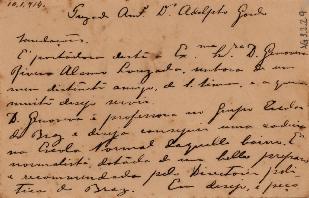 10.1.914.
Prezado Am.º Dr. Adolpho Gordo
Saudações.
É portadora desta a Ex.ma Sr.a D. Genoveva
Rivera Alamo Louzada, senhora de um
meu distincto amigo, de S. Simão, e a quem
muito desejo servir.
D. Genoveva é professora no Grupo Escolar
do Braz e deseja conseguir uma cadeira
na Escola Normal daquelle bairro. É
normalista, dotada de um bello preparo
e recommendada pelo Directorio poli-
tico do Braz. Em desejo, e peço